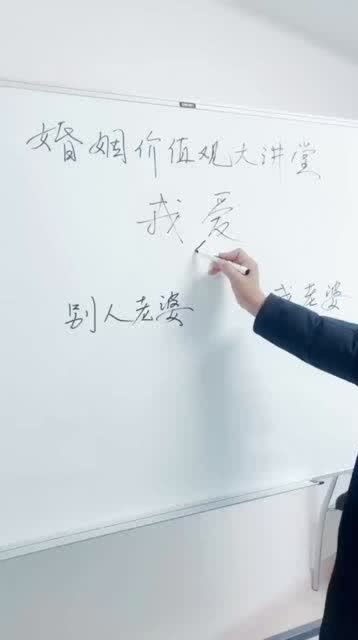 婚姻价值观大讲堂
我爱
别人老婆 我老婆